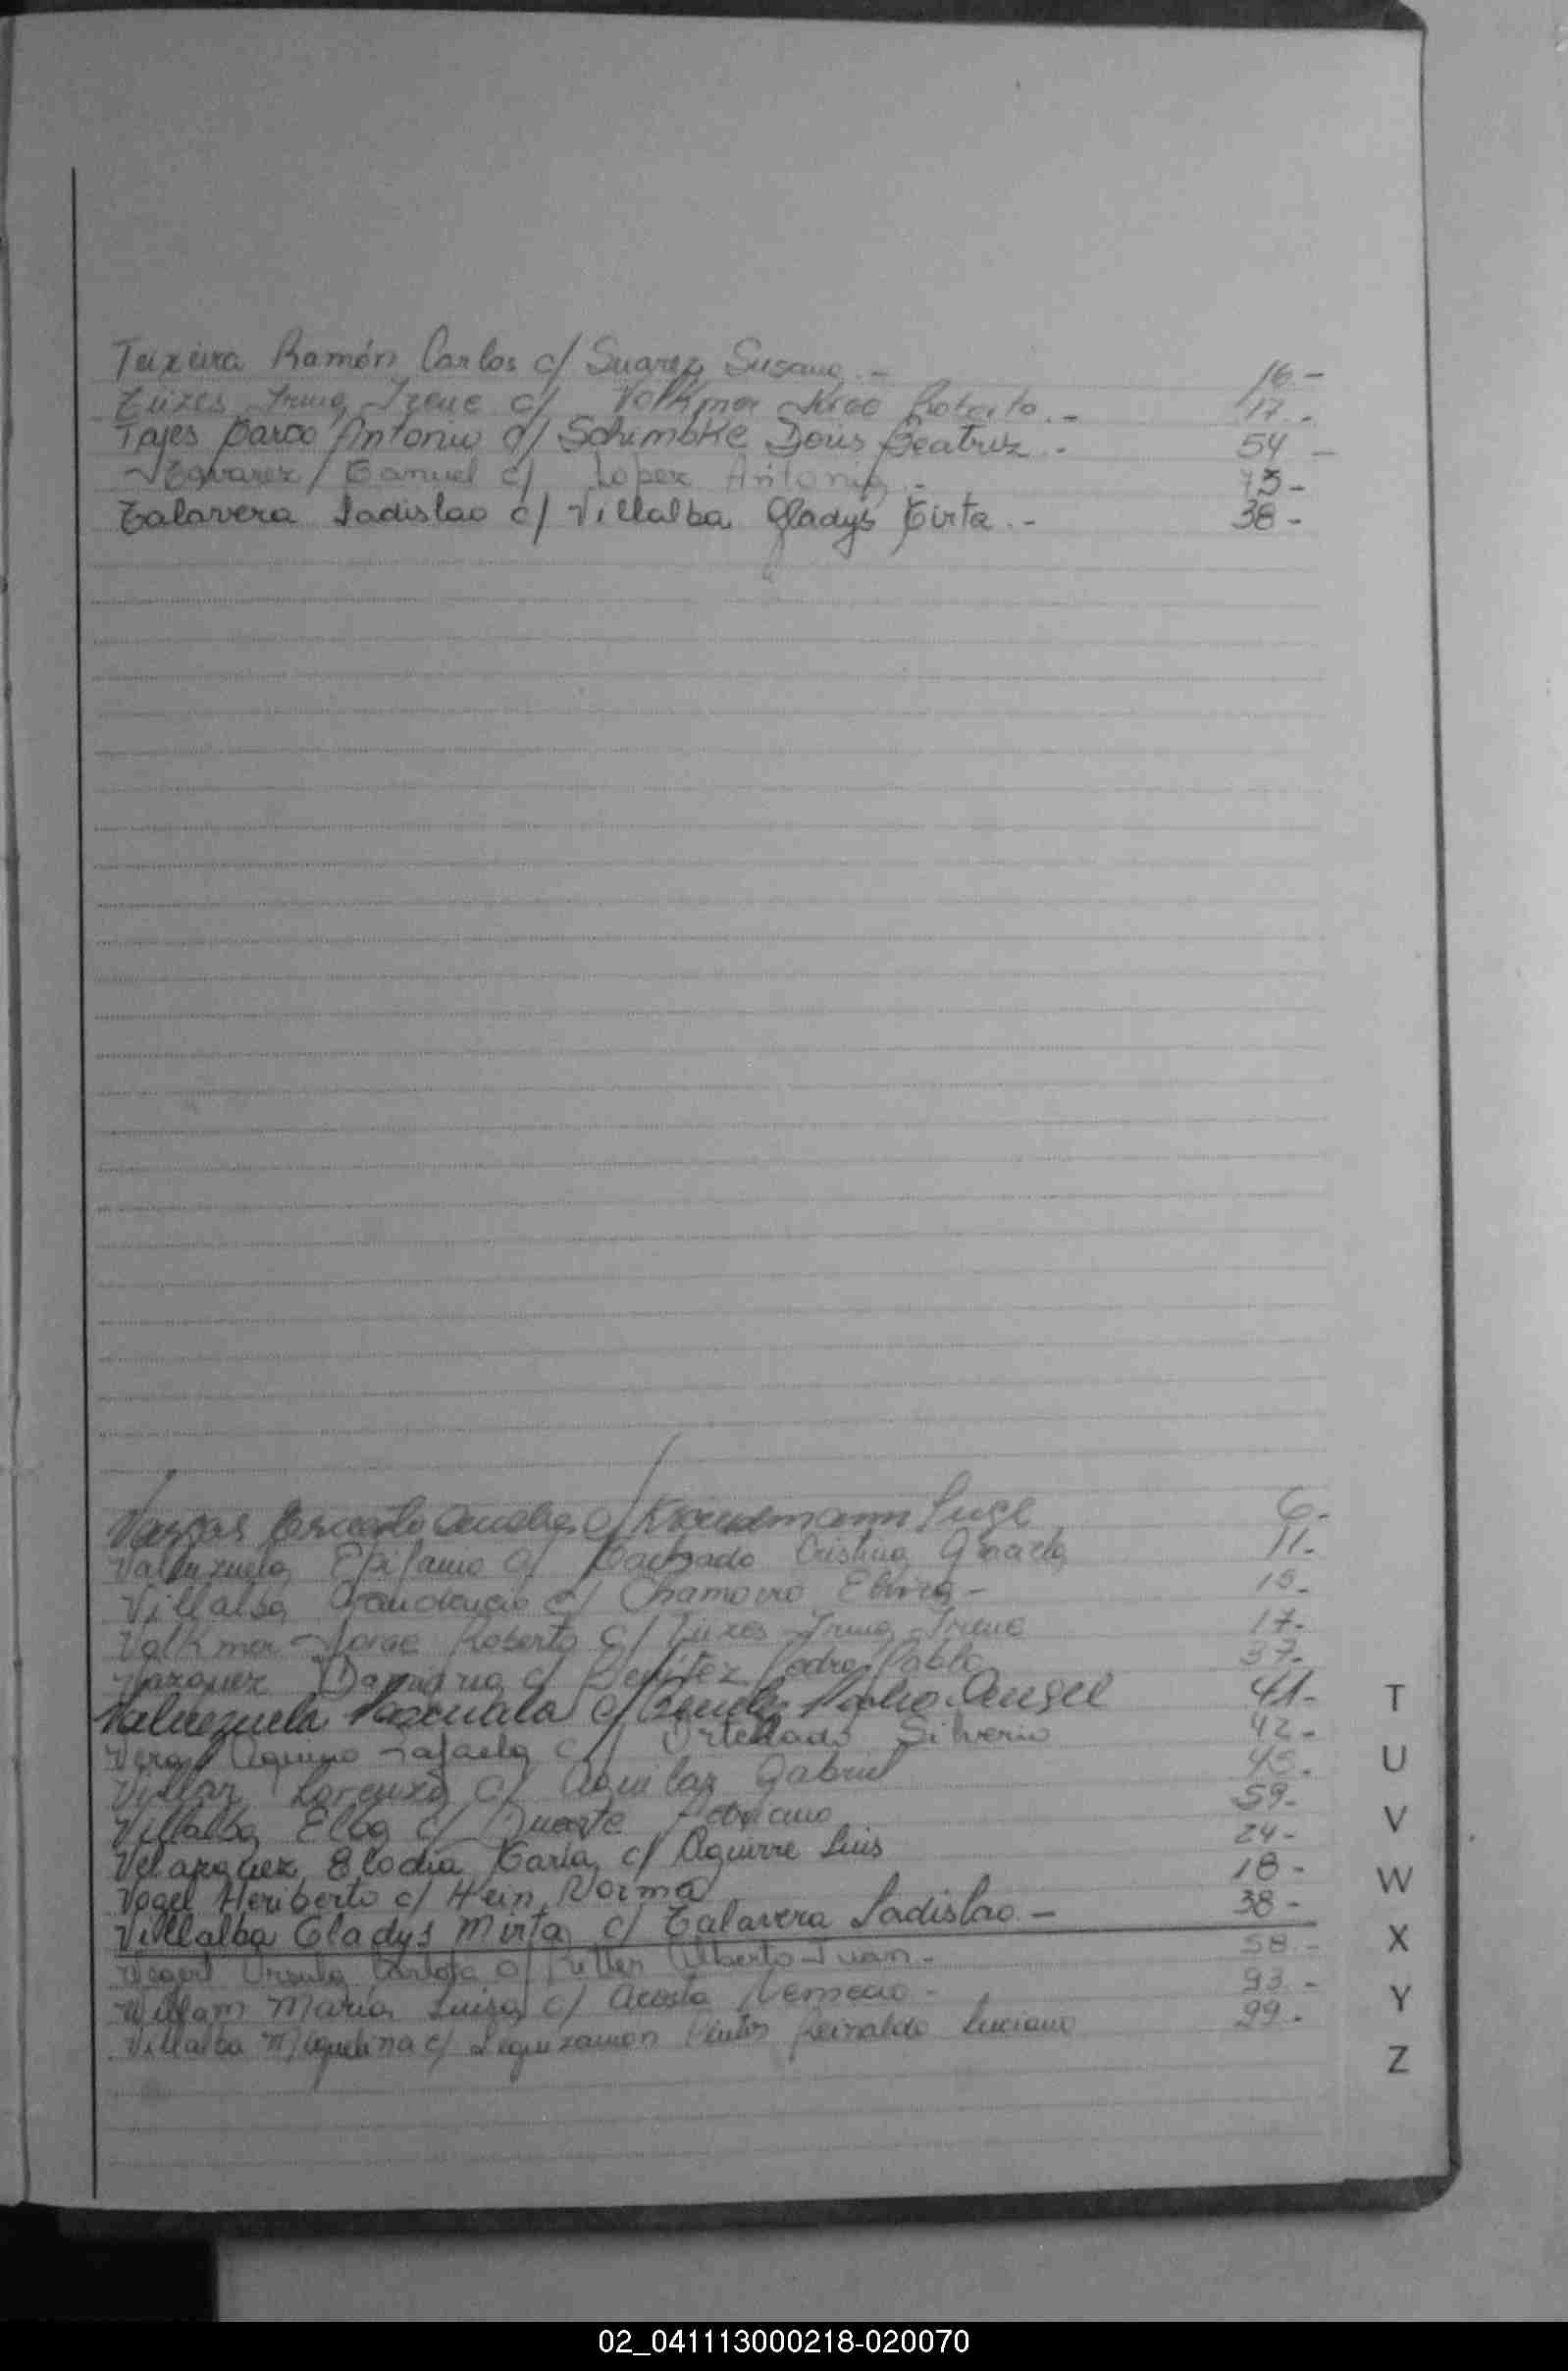 Teixeira Ramón Carlos c/ Suarez Susana.- 16-
Irma Irene c/ Volkmer Jorge Roberto.- 17.-
Tajes Marco Antonio c/ Schimbke Doris Beatriz.- 54-
Manuel c/ Lopez Antonia.- 73-
Talavera Ladislao c/ Villalba Gladys Mirta.- 38-
Vargas Ernesto c/ 6.-
Valenzuela Epifanio c/ Machado Cristina 11.-
Villalba Gaudencio c/ Chamorro Elvira- 15-
Volkmer Jorge Roberto c/ Irma Irene 17-
Vazquez Damiana c/ Benitez Pedro Pablo 37-
Valenzuela Pascuala c/ Angel 41-
Vera Aquino Rafaela c/ Ortellado Silverio 42-
Villar Lorenza c/ Aguilar Gabriel 45.
Villalba Elba c/ Duarte 59-
Velazquez Elodia Maria c/ Aguirre Luis 24-
Vogel Heriberto c/ Hein Norma 18-
Villalba Gladys Mirta c/ Talavera Ladislao.- 38-
Ursula c/ Alberto Juan- 58.-
William Maria Luisa c/ Acosta Nemecio- 93.-
Villalba Miguelina c/ Leguizamon Reinaldo Luciano 99.-
T
U
V
W
X
Y
Z
02_041113000218-020070